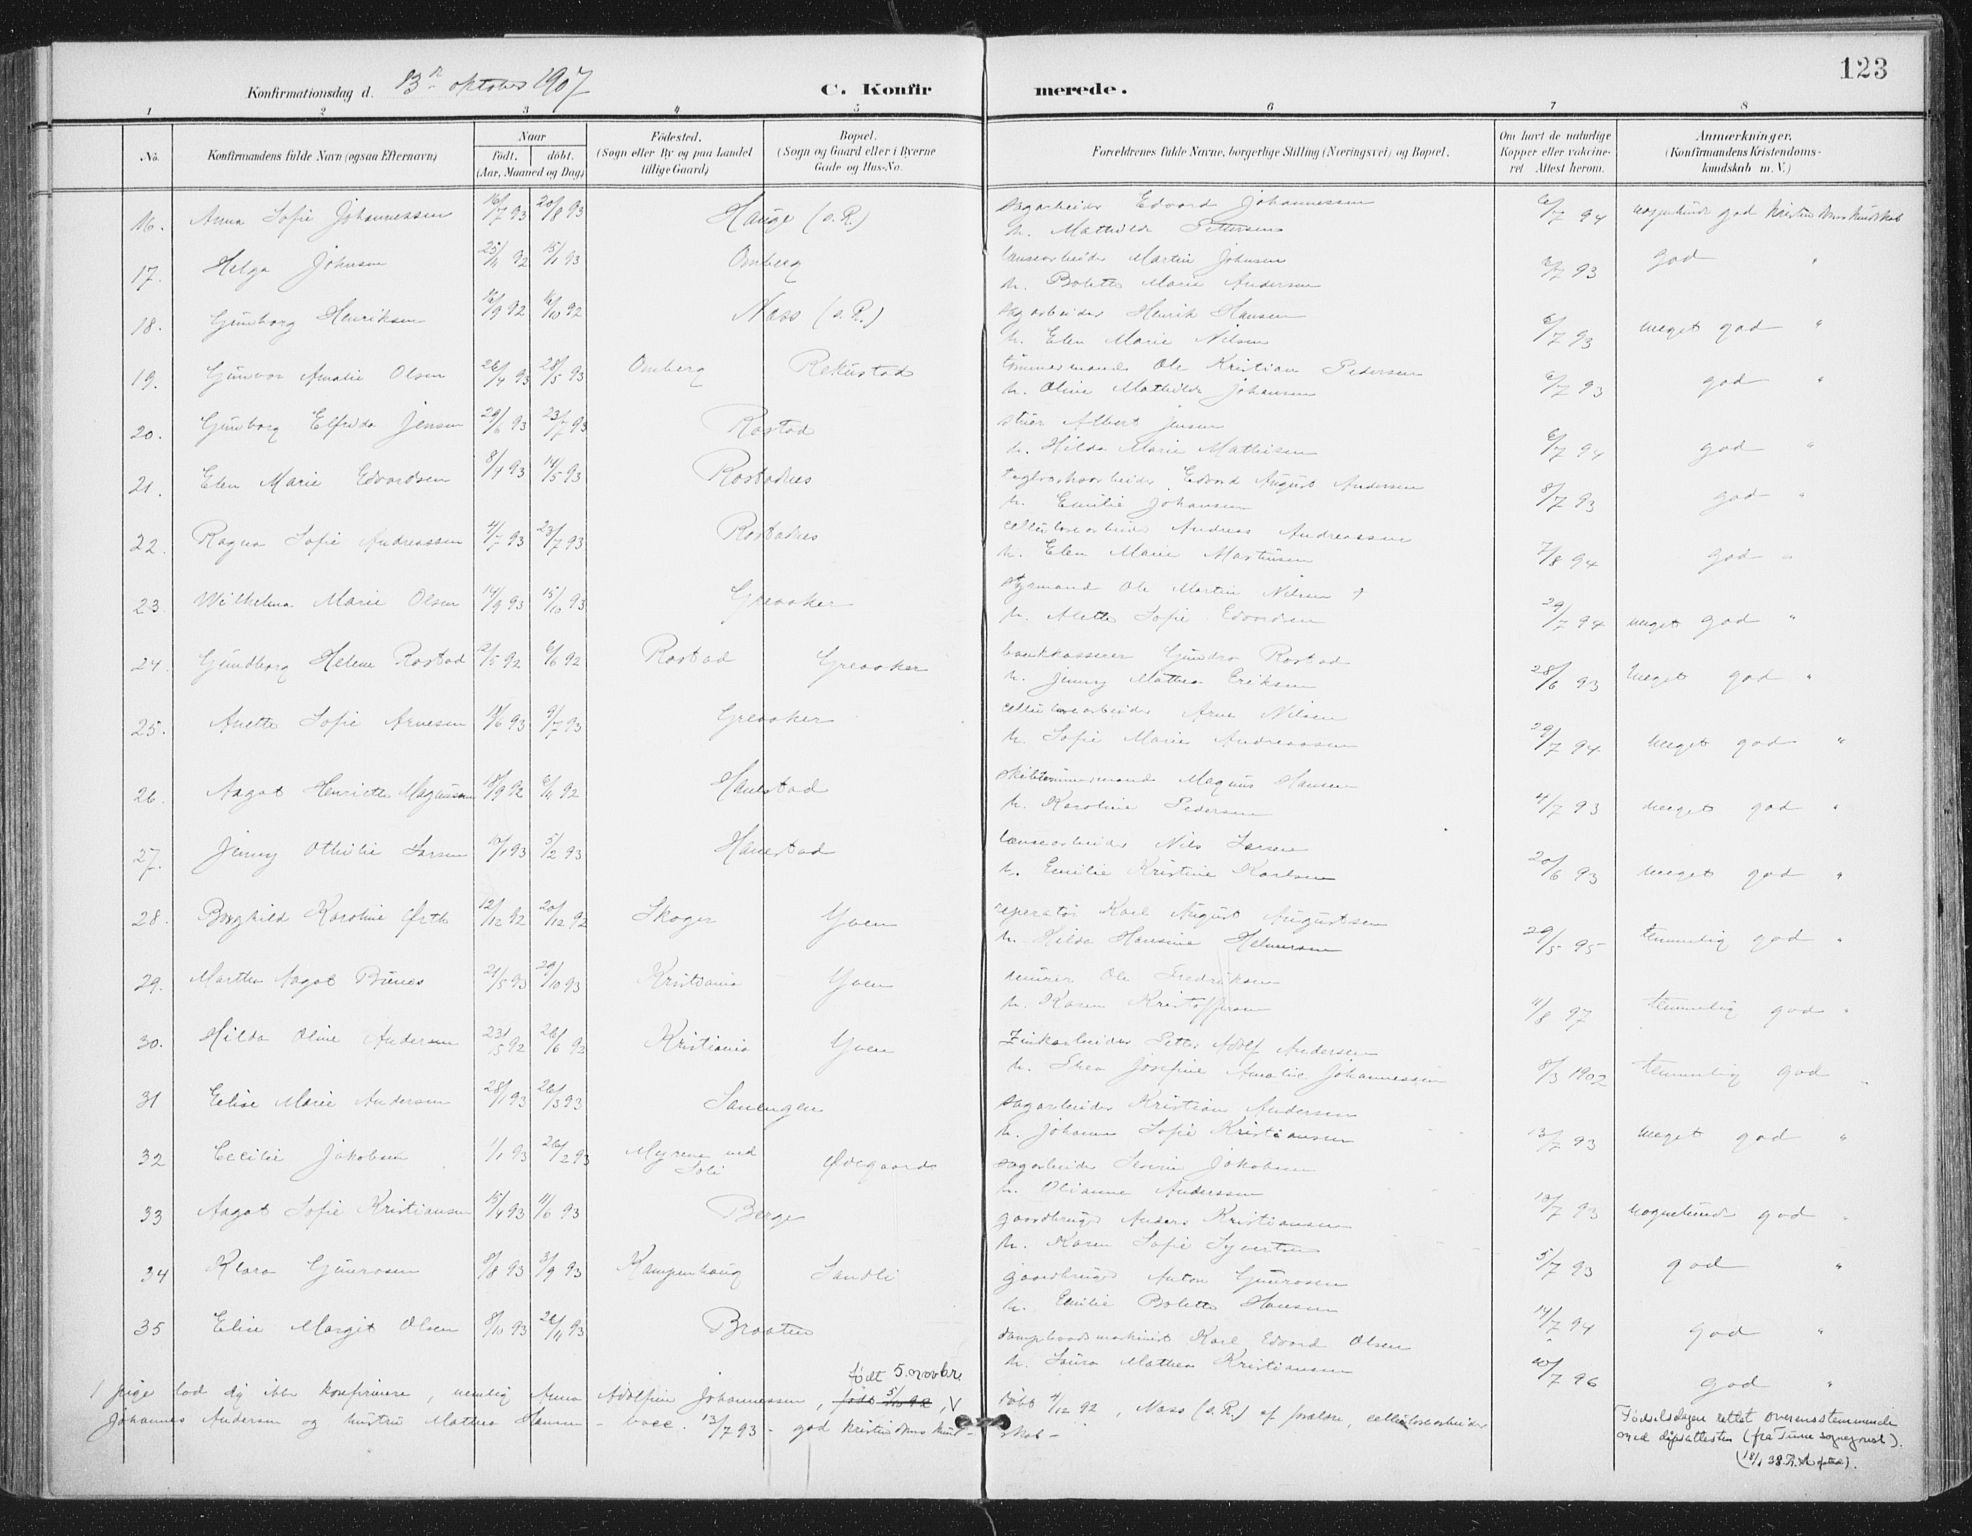 123
Konfirmationsdag d. 13de oktober 1907
C. Konfir merede.
1 2 3 4 5 6 7 8
No. Konfirmandens fulde Navn (ogsaa Efternavn) Naar födt. döbt. (Aar, Maaned og Dag) Födested. (Sogn eller By og paa Landet tillige Gaard) Bopæl. (Sogn og Gaard eller i Byerne Gade og Hus-No. Forældrenes fulde Navne, borgerlige Stilling (Næringsvei) og Bopæl. Om havt de naturlige Kopper eller vakcineret. Attest herom. Anmærkninger. (Konfirmandens Kristendomskundskab m. V.)
16. Anna Sofie Johannessen 16/7 93 20/8 93 Hauge (o.R.) sagarbeider Edvard Johannessen 6/7 94 nogenlunde god kristendomskundskab
h. Mathilde Pettersen
17. Helga Johnsen 25/11 92 15/1 93 Omberg lensearbeider Martin Johnsen 93 god "
h. Bolette Marie Andersen
18. Gunborg Henriksen 16/9 92 16/10 92 Næss (o.R.) sagarbeider Henrik Hansen 6/7 93 meget god "
h. Elen Marie Nilsen
19. Gunvor Amalie Olsen 26/4 93 28/5 93 Omberg Rekustad tömmermand Ole Kristian Pedersen 6/7 93 god "
h. Oline Mathilde Johansen
20. Gunborg Elfrida Jensen 29/6 93 23/7 93 Rostad stuer Albert Jensen 6/7 94 god "
h. Hilda Marie Mathisen
21. Elen Marie Edvardsen 8/4 93 14/5 93 Rostadnes teglverksarbeider Edvard August Andersen 8/7 93 god "
h. Emilie Johansen
22. Ragna Sofie Andreassen 4/7 93 23/7 93 Rostadnes cellulosearbeider Andreas Andreassen 7/8 94 god "
h. Elen Marie Martinsen
23. Wilhelma Marie Olsen 14/9 93 15/10 93 Greaaker styrmand Ole Martin Nilsen † 29/7 94 meget god "
h. Alette Sofie Edvardsen
24. Gundborg Helene Rostad 2/5 92 6/6 92 Rostad Greaaker bankkasserer Gundro Rostad 28/6 93 meget god "
h. Jenny Mathea Eriksen
25. Anette Sofie Arnesen 93 9/7 93 Greaaker cellulosearbeider Arne Nilsen 29/7 94 meget god "
h. Sofie Marie Andreassen
26. Aagot Henriette Magnusen 18/9 92 92 Hanestad skibstömmermand Magnus Hansen 4/7 93 meget god "
h. Karoline Pedersen
27. Jenny Othilie Larsen 93 5/2 93 Hanestad lensearbeider Nils Larsen 20/6 93 meget god "
h. Emilie Kristine Karlsen
28. Borghild Karoline Örtli 12/12 92 20/12 92 Skoger Yven reperatör Karl August Augustsen 29/5 95 temmelig god "
h. Hilda Hansine Helmersen
29. Marthe Aagot Bunes 21/5 93 29/10 93 Kristiania Yven murer Ole Fredriksen 11/8 97 temmelig god "
h. Karen Kristoffersen
30. Hilda Oline Andersen 23/5 92 26/6 92 Kristiania Yven Zinkarbeider Petter Adolf Andersen 8/3 1902 temmelig god "
h. Thea Josefine Amalie Johannessen
31 Elise Marie Andersen 28/1 93 26/3 93 Sanengen sagarbeider Kristian Andersen 13/7 93 meget god "
h. Johanne Sofie Kristiansen
32 Cecilie Jakobsen 1/1 93 26/2 93 Myrene ved Soli Ödegaard sagarbeider Severin Jakobsen
h. Olianne Anderssen
33 Aagot Sofie Kristiansen 15/4 93 11/6 93 Berge gaardbruger Anders Kristiansen 13/7 93 nogenlunde god "
h. Karen Sofie Syvertsen
34 Klara Gunrosen 8/8 93 3/9 93 Kampenhaug Sandli gaardbruger Anton Gunrosen 5/7 93 god "
h. Emilie Bolette Hansen
35 Elise Margit Olsen 8/10 93 26/11 93 Braaten dampbaadsmaskinist Karl Edvard Olsen 14/7 94 god "
h. Laura Mathea Kristiansen 10/7 96 god "
födt 5. novbr.
1 pige lod sig ikke konfirmere, nemlig Anna Adolfine Johannessen, födt 5/10 92, V döbt 4/12 92, Næss (o.R.) af forældre, cellulosearbeider
Johannes Andersen og hustru Mathea Hansen – vacc. 13/7 93 – god kristendomskundskab –
Födselsdagen rettet overensstemmende
med dåpsattesten (fra Tune sogneprest).